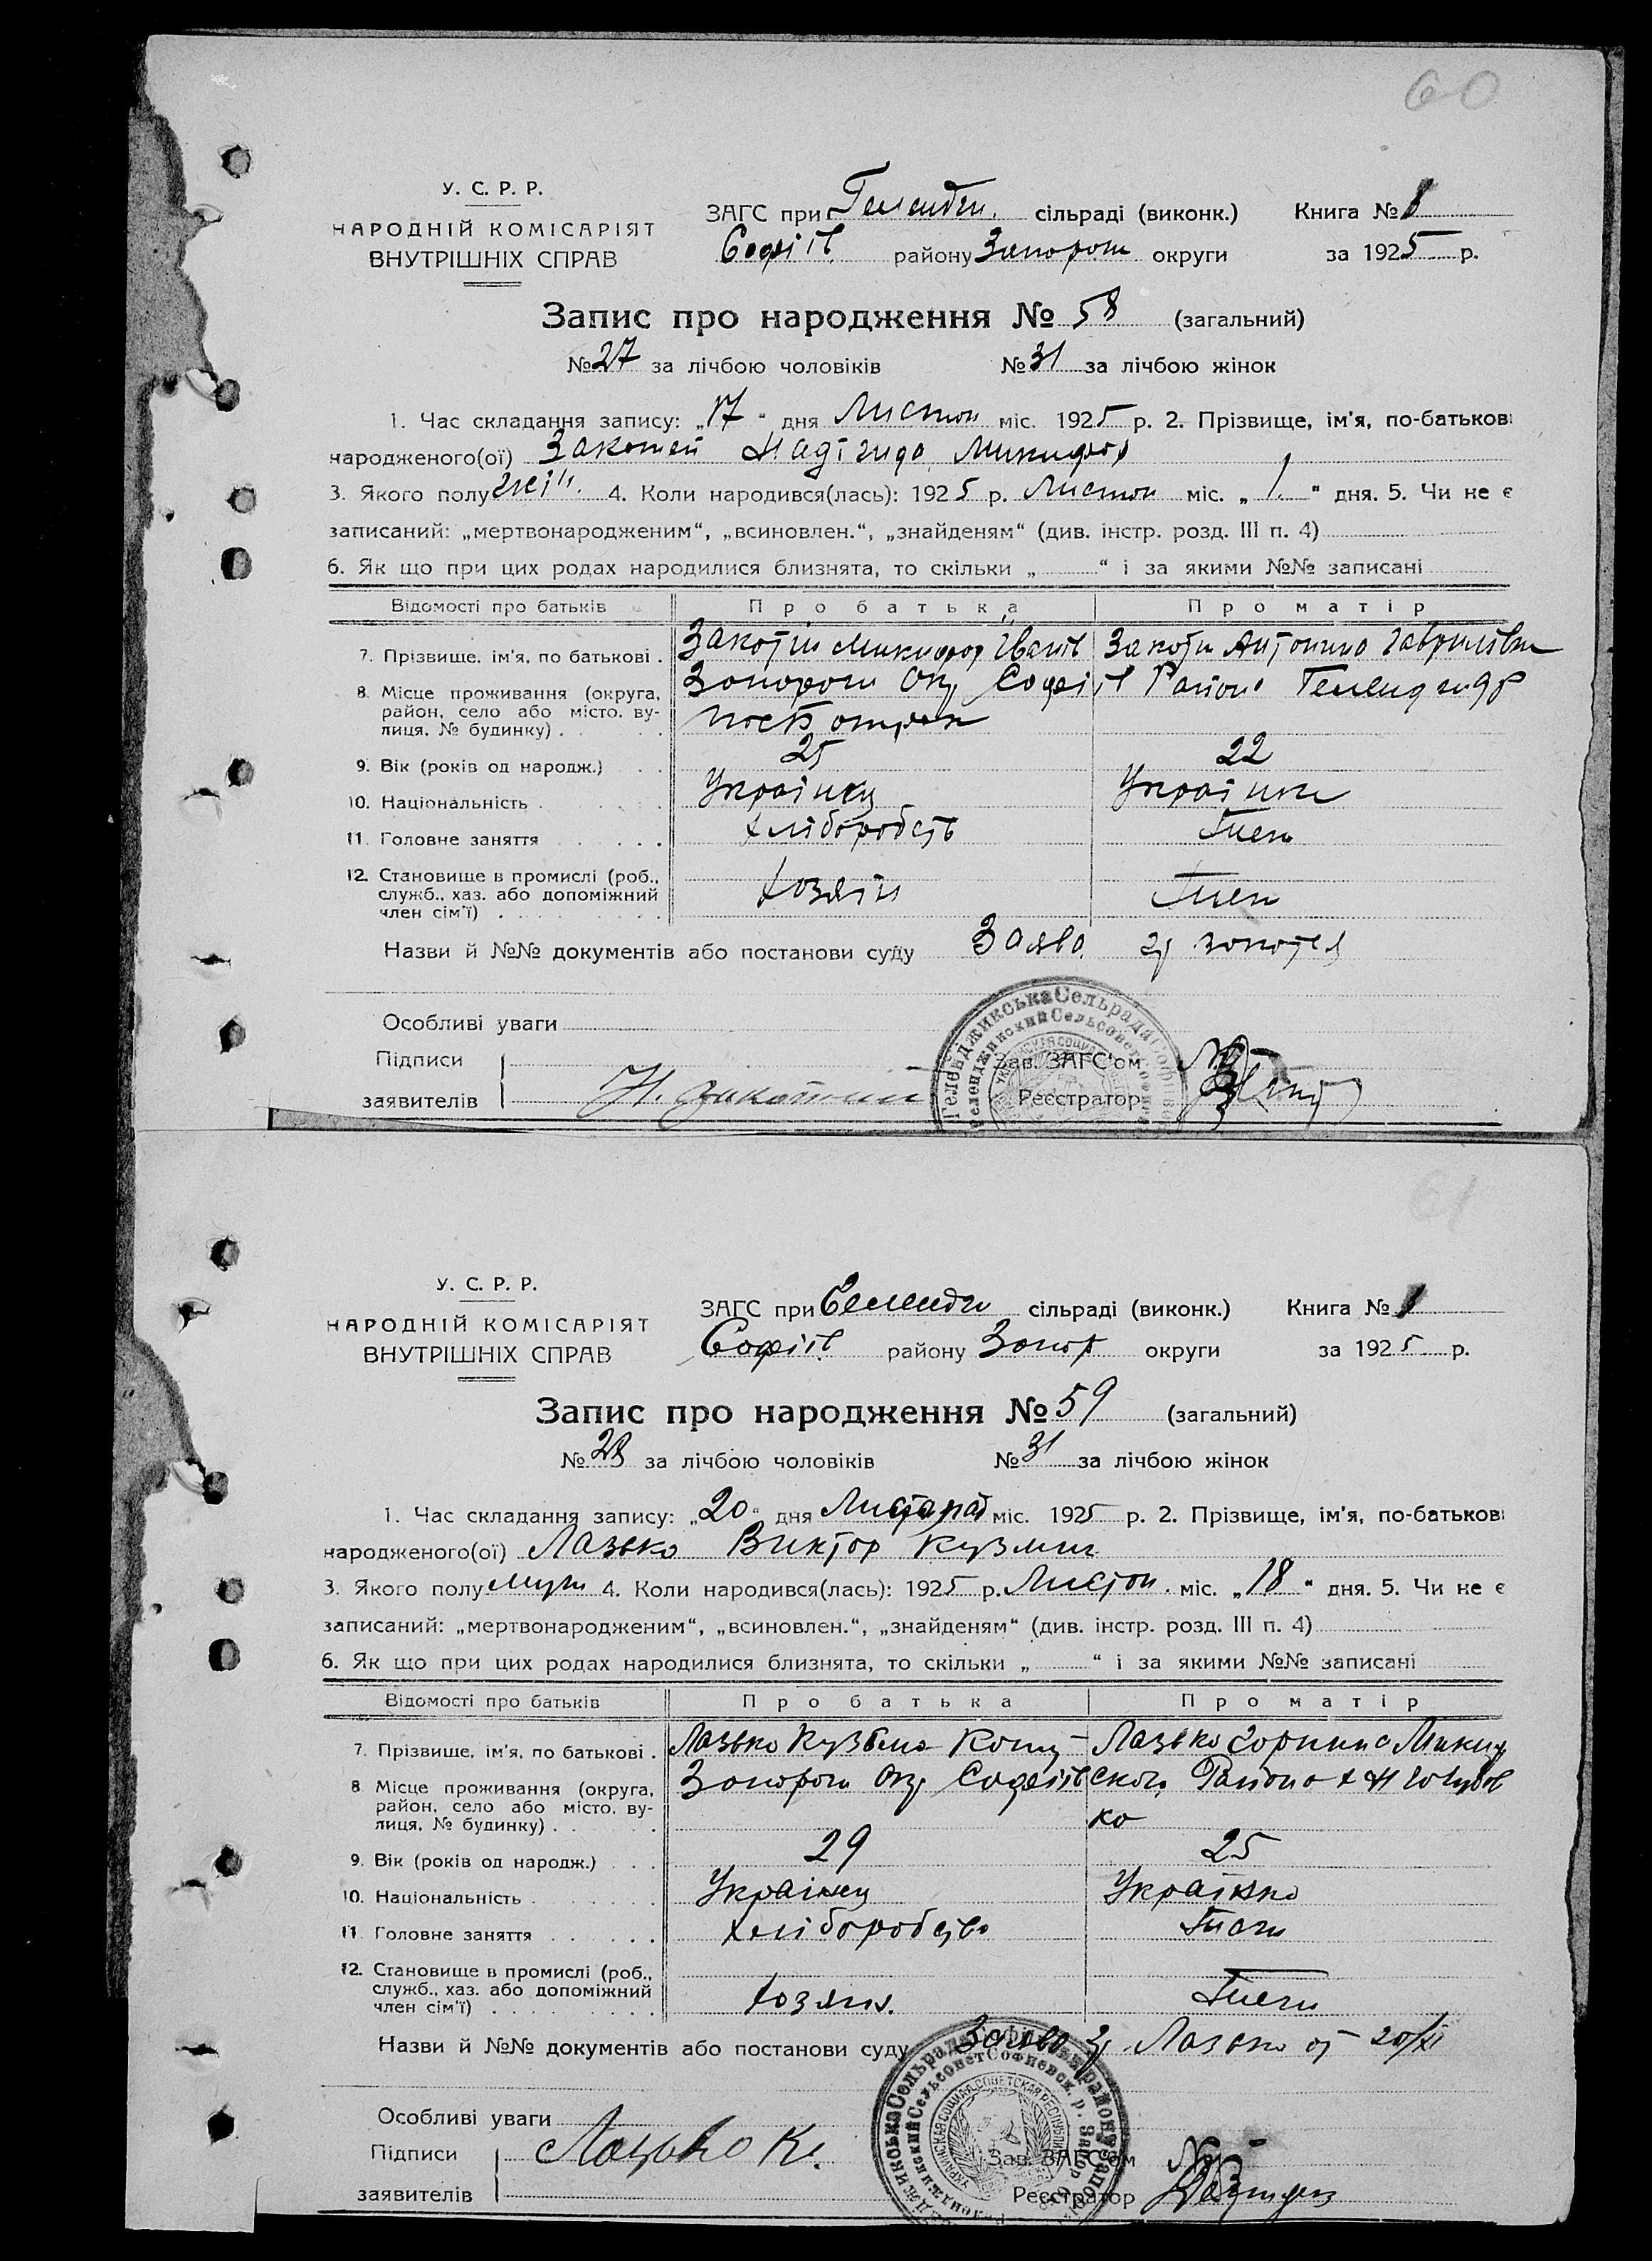 60
У. С. Р. Р.
НАРОДНІЙ КОМІСАРІЯТ
ВНУТРІШНІХ СПРАВ
ЗАГС при Гелендж. сільраді (виконк.) Книга № 1
Софіїв. району Запорож округи за 1925 р.
Запис про народження № 58 (загальний)
№ 27 за лічбою чоловіків № 31 за лічбою жінок
1. Час складання запису: „17“ дня Листоп міс. 1925 р. 2. Прізвище, ім'я, по-батькові
народженого(ої) Закотей Надіжда Микифор
3. Якого полу жін. 4. Коли народився(лась): 1925 р. Листоп міс. „1.“ дня. 5. Чи не є
записаний: „мертвонародженим“, „всиновлен.“, „знайденям“ (див. інстр. розд. III п. 4)
6. Як що при цих родах народилися близнята, то скільки „ “ і за якими №№ записані
Відомості про батьків Про батька Про матір
7. Прізвище, ім'я, по батькові . Закотій Микифор Іванів Закоти Антонина Гаврилівн
8. Місце проживання (округа, Запорож Окр Софіїв Району
район, село або місто, ву-
лиця, № будинку) . .
9. Вік (років од народж.) . . 25 22
10. Національність . Українец Українк
11. Головне заняття . . . . . . хліборобств Іжен
12. Становище в промислі (роб.,
служб., хаз. або допоміжний хозяін Іжен
член сім'ї) . . . . . . . . .
Назви й №№ документів або постанови суду Заява гр Закотея
Особливі уваги
Підписи Зав. ЗАГС'ом
заявителів Н. Закотний Реєстратор
Геленджикська Сельрада Софіїв
Геленджикский Сельсовет Софиев
61
У. С. Р. Р.
НАРОДНІЙ КОМІСАРІЯТ
ВНУТРІШНІХ СПРАВ
ЗАГС при Геленджи сільраді (виконк.) Книга № 1
Софіїв. району Запор округи за 1925 р.
Запис про народження № 59 (загальний)
№ 28 за лічбою чоловіків № 31 за лічбою жінок
1. Час складання запису: „20“ дня Листопад міс. 1925 р. 2. Прізвище, ім'я, по-батькові
народженого(ої) Лазько Виктор Кузьмич
3. Якого полу муж 4. Коли народився(лась): 1925 р. Листоп. міс. „18“ дня. 5. Чи не є
записаний: „мертвонародженим“, „всиновлен.“, „знайденям“ (див. інстр. розд. III п. 4)
6. Як що при цих родах народилися близнята, то скільки „ “ і за якими №№ записані
Відомості про батьків Про батька Про матір
7. Прізвище, ім'я, по батькові . Лазько Кузьма Лазько
8. Місце проживання (округа, Запорож Окр Софіївского Району
район, село або місто, ву-
лиця, № будинку) . . ко
9. Вік (років од народж.) . . . 29 25
10. Національність . Українец Українка
11. Головне заняття . . . . . . хліборобство Іжен
12. Становище в промислі (роб.,
служб., хаз. або допоміжний хозяин. Іжен
член сім'ї) . . . . . . . . .
Назви й №№ документів або постанови суду Заява гр Лазько от 20/XI
Особливі уваги
Підписи Лазько К. Зав. ЗАГС'ом
заявителів Реєстратор